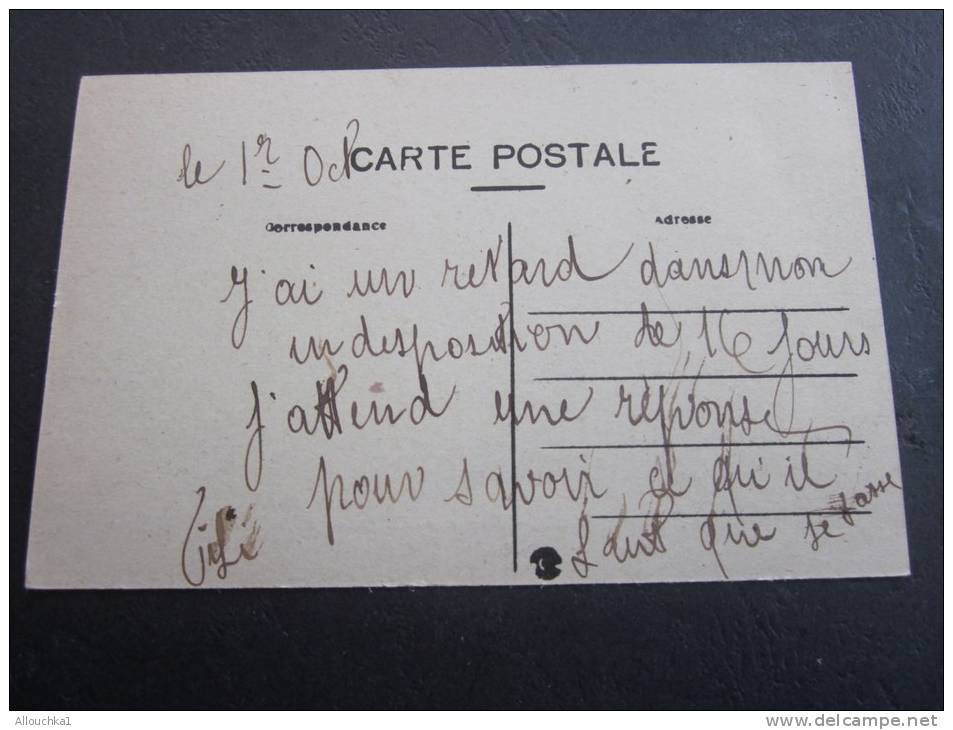 le 1r Oct
CARTE POSTALE
Correspondance
Adresse
J'ai un retard dans mon
indesposition de 16 Jours
J'attend une réponse
pour savoir ce qu'il
faut que je fasse
Allouchka1
www.delcampe.net